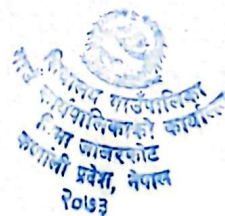 गाउँपालिका
कार्यपालिकाको कार्यालय
जाजरकोट
कर्णाली प्रदेश, नेपाल
२०७३